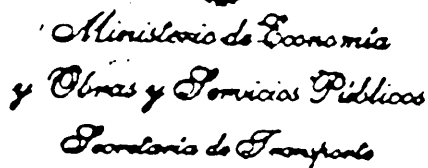 Ministerio de Economía
y Obras y Servicios Públicos
Secretaría de Transporte